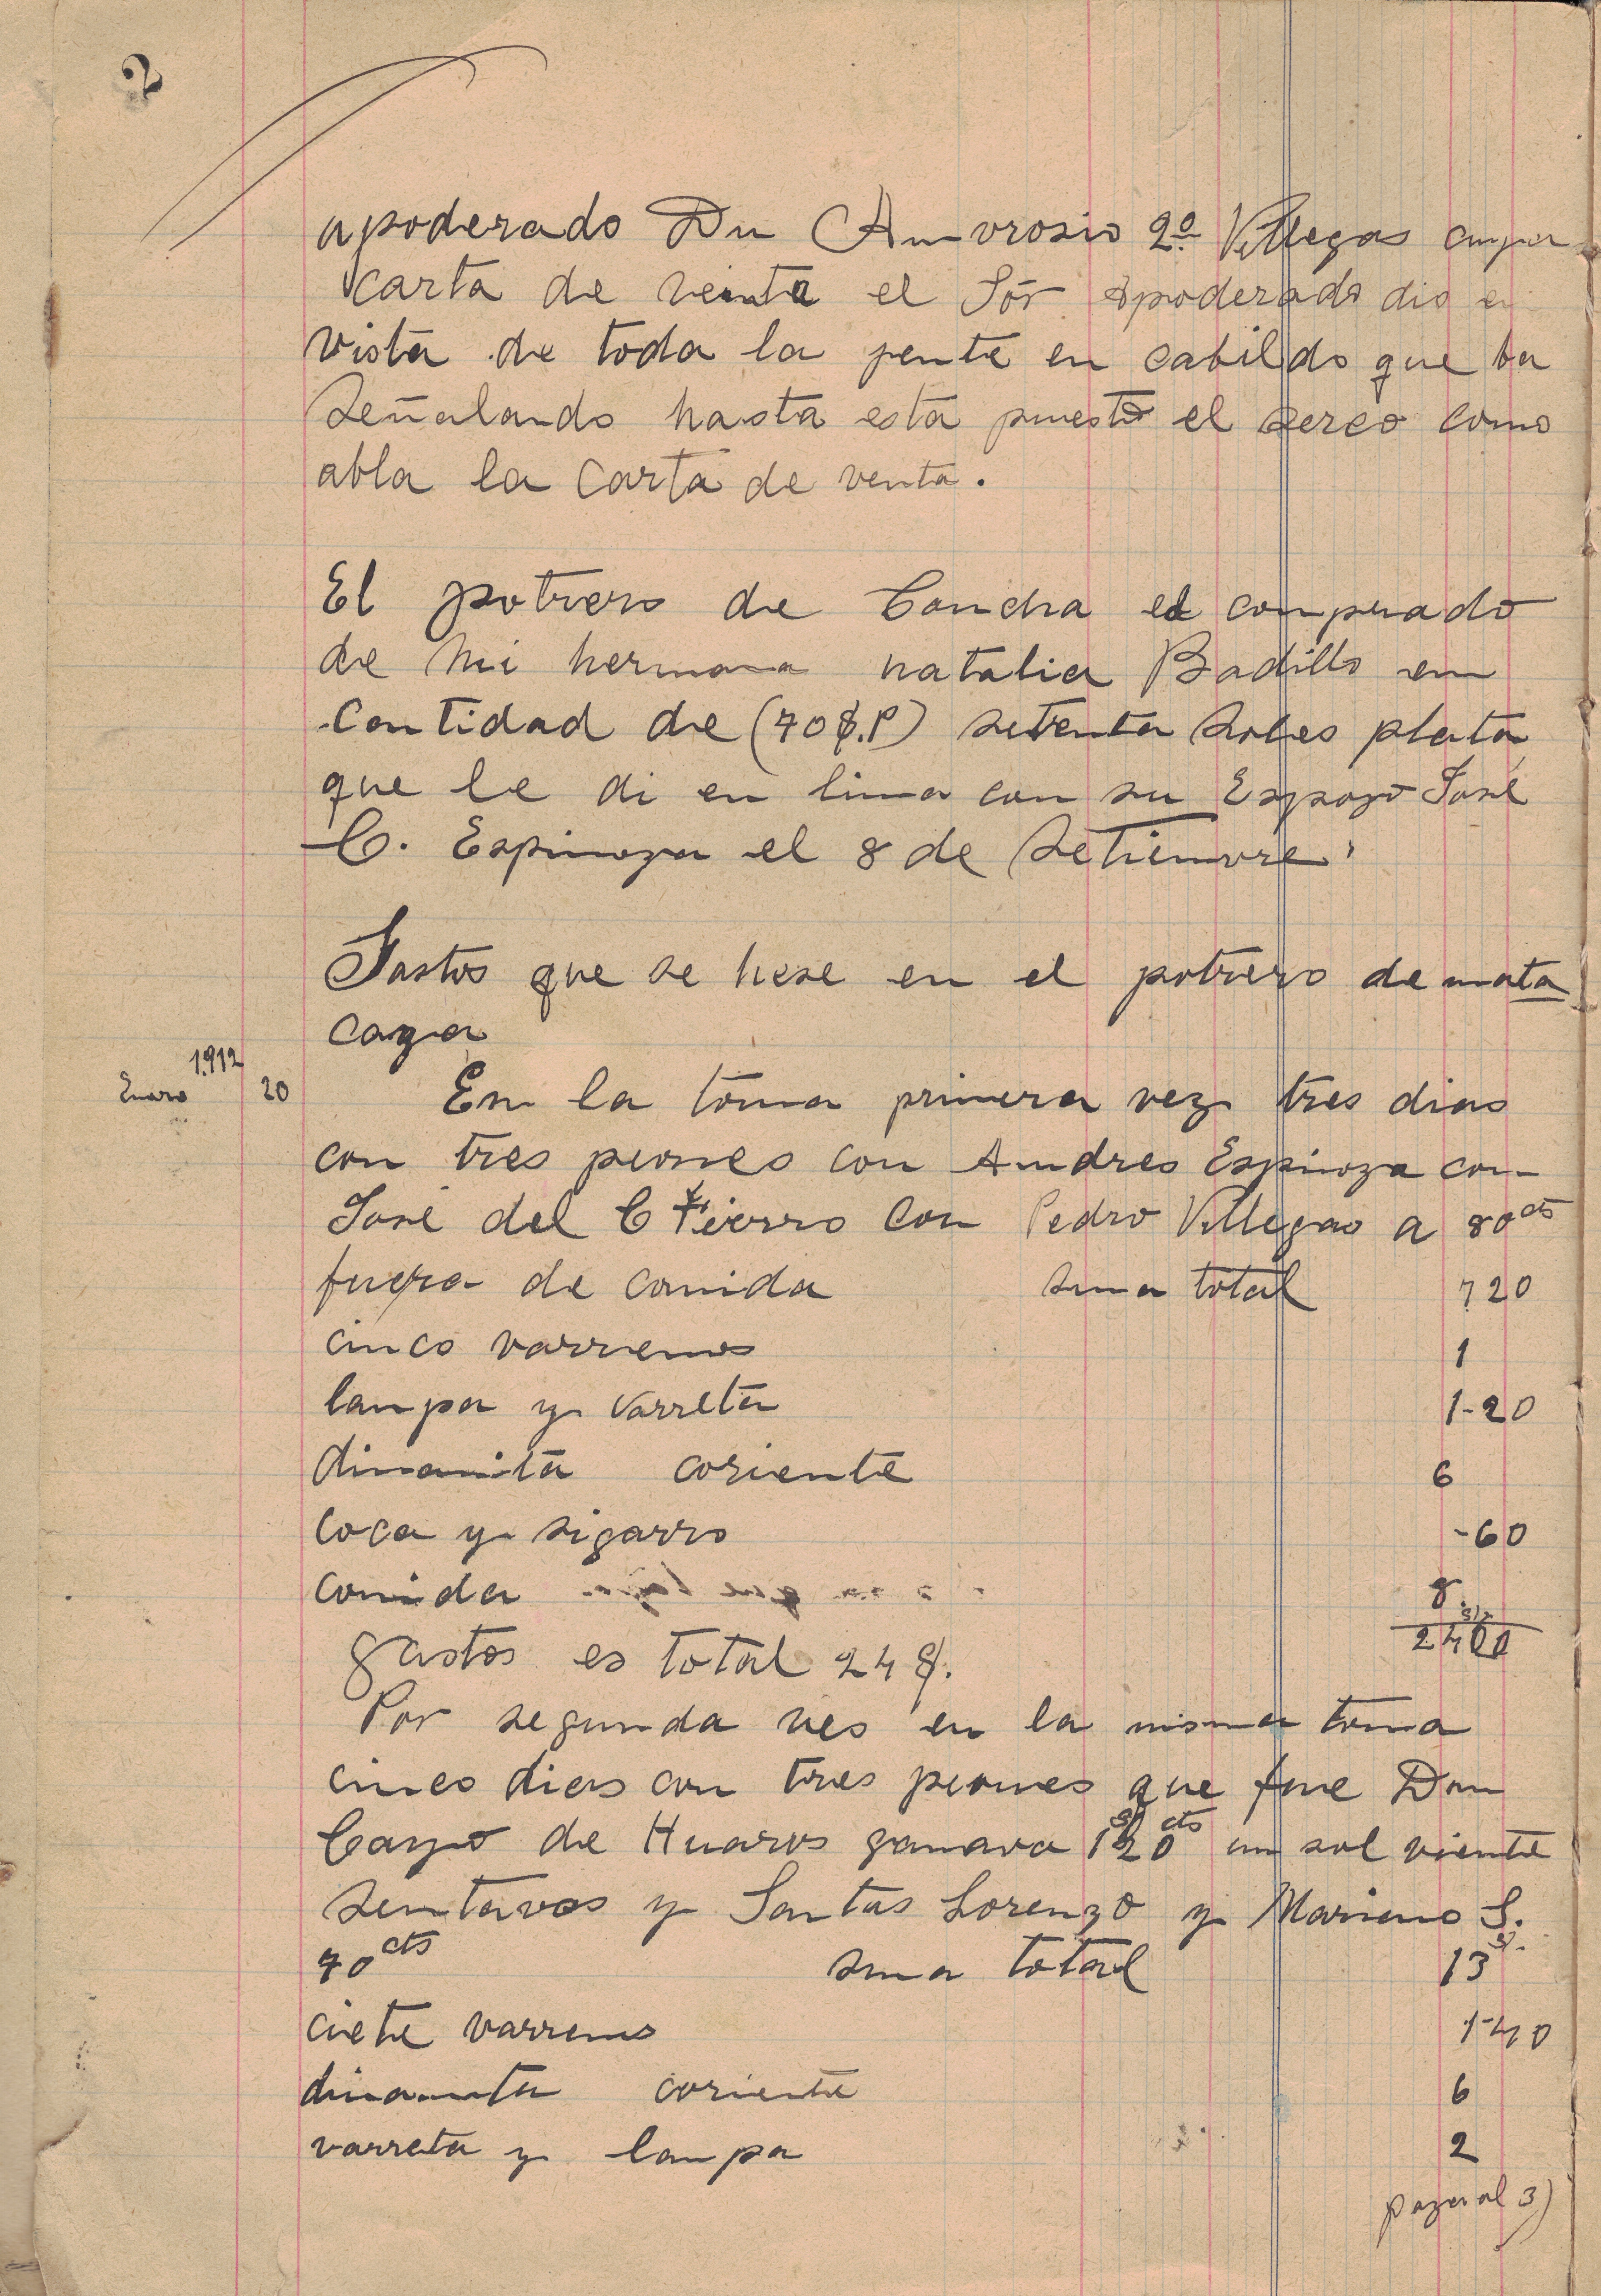 2
apoderado Dn Amvrosio 2º Villegas cuya
carta de venta el Sór apoderado dio en
vista de toda la jente en cabildo que ba
señalando hasta esta puesto el serco como
abla la carta de venta.
El potrero de Concha es comprado
de mi hermana natalia Badillo en
Contidad de (70 $.P) setenta Soles plata
que le di en lima con su Espozo José
C. Espinoza el 8 de Setiemvre.
Gastos que se hese en el potrero de mata
caza
1912
Enero 20 En la toma primera vez tres dias
con tres piones con Andres Espinoza con
José del C Fierro con Pedro Villegas a 80 cts
fuera de comida suma total 7 20
cinco varrenos 1
lampa y varreta 1-20
dinamita coriente 6
Coca y sigarro -60
Comida 8.
2400
gastos es total 24 $.
Por segunda ves en la misma toma
cinco dias con tres piones que fue Don
Cayo de Huaros ganava 1$20 cts un sol viente
sentavos y Santas Lorenzo y Mariano S.
70 cts suma total 13 $.
ciete varrenos 1-40
dinamita coriente 6
varreta y lampa 2
paza al 3)